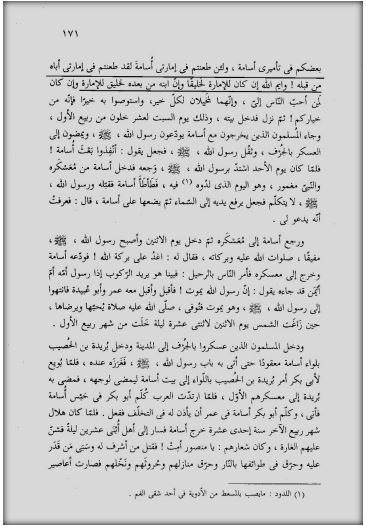 ١٧١
بعضكم فى تأميرى أسامة ، ولئن طعنتم فى إمارتى أُسامةَ لقد طعنتم فى إمارتى أباه
من قبله ! وايم الله إن كان للإمارة لخليقًا وإنّ ابنه من بعده لخليق للإمارة وإن كان
لمن أحبّ الناس إلىّ ، وإنّهما لمخيلان لكلّ خير، واستوصوا به خيرًا فإنّه من
خياركم ! ثمّ نزل فدخل بيته ، وذلك يوم السبت لعشر خلون من ربيع الأول ،
وجاء المسلمون الذين يخرجون مع أسامة يودّعون رسول الله ، ﷺ ، ويمضون إلى
العسكر بالجُرْف، وثَقُل رسول الله ، ﷺ ، فجعل يقول : أنْفِذُوا بَعْثَ أُسامة !
فلمّا كان يوم الأحد اشتدّ برسول الله ، ﷺ ، وَجعه فدخل أسامة من مُعَسْكَره
والنّبىّ مغمور ، وهو اليوم الذى لدّوه (١) فيه ، فطأطأ أسامة فقبّله ورسول الله ،
ﷺ ، لا يتكلّم فجعل يرفع يديه إلى السّماء ثمّ يضعها على أسامة ، قال : فعرفتُ
أنّه يدعو لى .
ورجع أسامة إلى مُعَسْكَره ثمّ دخل يوم الاثنين وأصبح رسول الله ، ﷺ ،
مفيقًا ، صلوات الله عليه وبركاته ، فقال له : اغدُ على بركة الله ! فودّعه أسامة
وخرج إلى معسكره فأمر النّاس بالرحيل : فبينا هو يريد الرّكوب إذا رسول أمّه أمّ
أيْمَن قد جاءه يقول : إنّ رسول الله يموت ! فأقبل وأقبل معه عمر وأبو عُبيدة فانتهوا
إلى رسول الله ، ﷺ ، وهو يموت فتُوفى ، صلّى الله عليه صلاة يُحبّها ويرضاها ،
حين زَاغَت الشمس يوم الاثنين لاثنتى عشرة ليلة خَلَت من شهر ربيع الأول .
ودخل المسلمون الذين عسكروا بالجُرْف إلى المدينة ودخل بُريدة بن الحُصيب
بلواء أسامة معقودًا حتى أتى به باب رسول الله ، ﷺ ، فَغَرَزَه عنده ، فلمّا بُويع
لأبى بكر أمر بُريدة بن الحُصيب باللّواء إلى بيت أسامة ليمضى لوجهه ، فمضى به
بُريدة إلى معسكرهم الأول ، فلمّا ارتدّت العرب كُلّم أبو بكر فى حَبْس أُسامة
فأبى، وكلّم أبو بكر أسامة فى عمر أن يأذن له فى التخلّف ففعل . فلمّا كان هلال
شهر ربيع الآخر سنة إحدى عشرة خرج أسامة فسار إلى أهل أُبْنَى عشرين ليلةً فشنّ
عليهم الغارة ، وكان شعارهم : يا منصور أمِتْ ! فقتل من أشرف له وسبَى مَن قَدَر
عليه وحرّق فى طوائفها بالنّار وحرّق منازلهم وحُروثهم ونَخْلهم فصارت أعاصير
(١) اللدود : مايصب بالمسعط من الأدوية فى أحد شقى الفم .